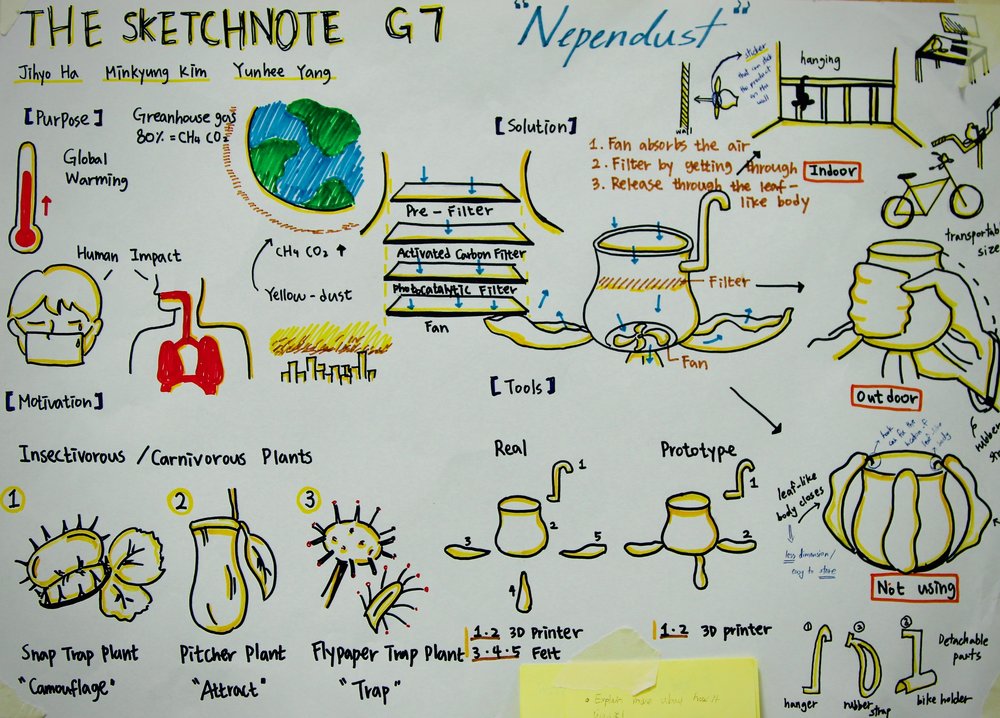 THE SKETCHNOTE G7
"Nependust"
Jihyo Ha Minkyung Kim Yunhee Yang
[Purpose]
Global
Warming
Greenhouse gas
80% = CH4 CO2
Human Impact
CH4 CO2 ↑
Yellow-dust
[Motivation]
Insectivorous / Carnivorous Plants
1
2
3
Snap Trap Plant
"Camouflage"
Pitcher Plant
"Attract"
Flypaper Trap Plant
"Trap"
[Solution]
1. Fan absorbs the air
2. Filter by getting through
3. Release through the leaf-
like body
Pre-Filter
Activated Carbon Filter
Photocatalytic Filter
Fan
Filter
Fan
wall
sticker
that can stick
the product
on the
wall
hanging
Indoor
transportable
size
Outdoor
rubber
leaf-like
body closes
less dimension/
easy to store
Not using
[Tools]
Real
1
2
3
5
4
1·2 3D Printer
3·4·5 Felt
Prototype
1
2
1·2 3D printer
1
2
3
Detachable
parts
hanger
rubber
strap
bike holder
Explain more about how it